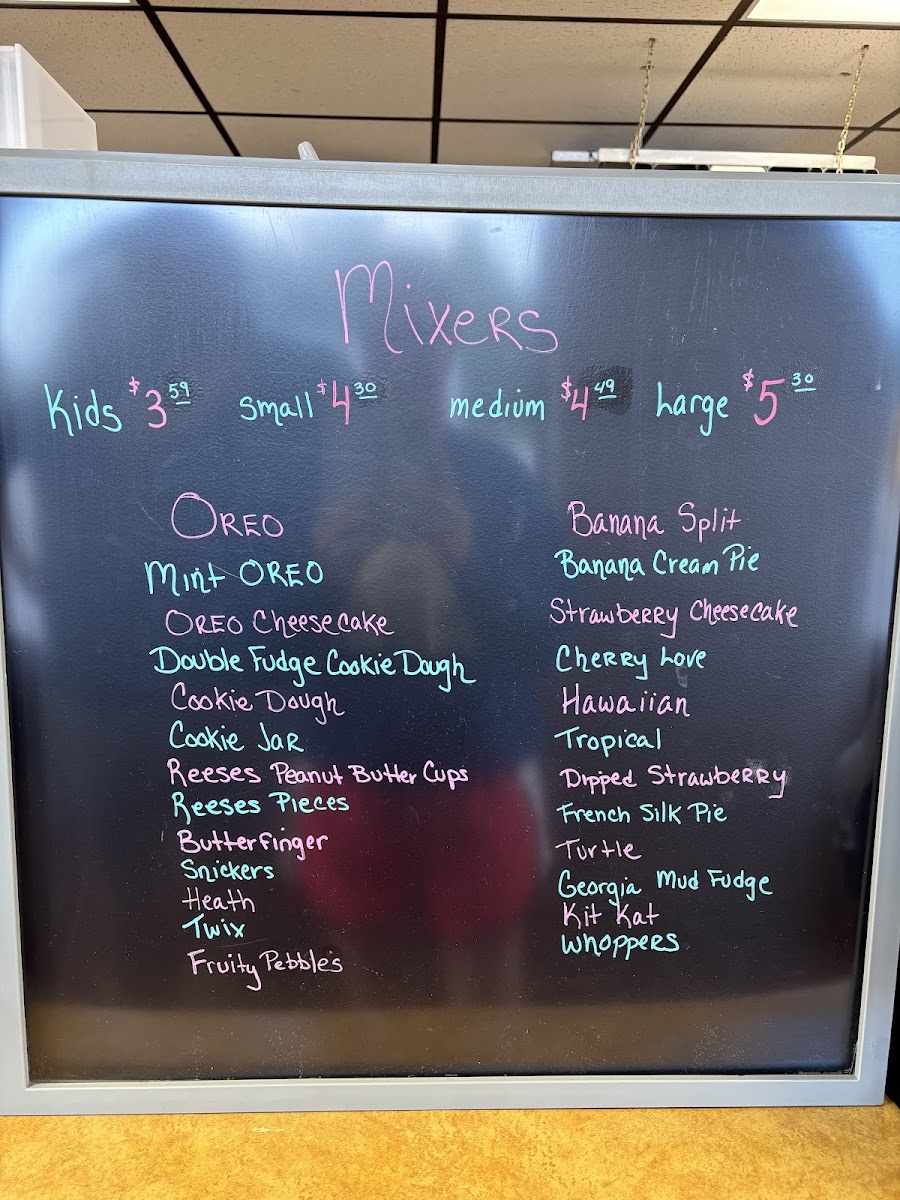 Mixers
Kids $3.59 Small $4.30 medium $4.49 Large $5.30
OREO
Mint OREO
OREO Cheesecake
Double Fudge Cookie Dough
Cookie Dough
Cookie Jar
Reeses Peanut Butter Cups
Reeses Pieces
Butterfinger
Snickers
Heath
Twix
Fruity Pebbles
Banana Split
Banana Cream Pie
Strawberry Cheesecake
Cherry Love
Hawaiian
Tropical
Dipped Strawberry
French Silk Pie
Turtle
Georgia Mud Fudge
Kit Kat
Whoppers